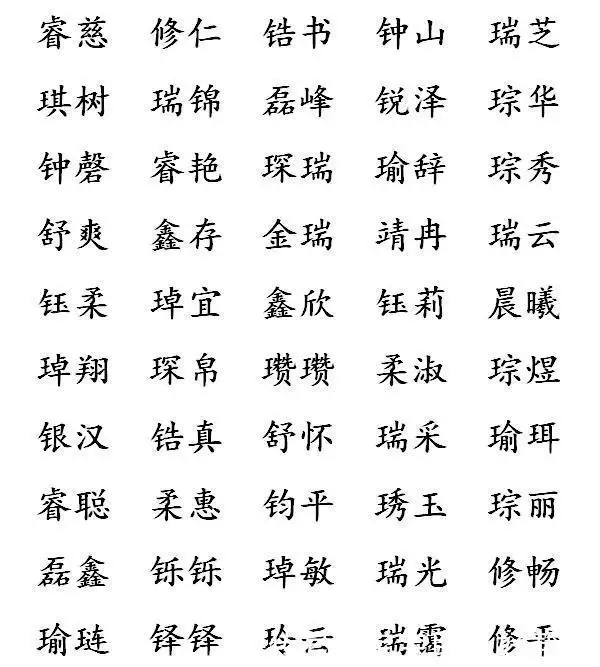 睿慈 修仁 锆书 钟山 瑞芝
琪树 瑞锦 磊峰 锐泽 琮华
钟磬 睿艳 琛瑞 瑜辞 琮秀
舒爽 鑫存 金瑞 靖冉 瑞云
钰柔 琸宜 鑫欣 钰莉 晨曦
琸翔 琛帛 瓒瓒 柔淑 琮煜
银汉 锆真 舒怀 瑞采 瑜珥
睿聪 柔惠 钧平 琇玉 琮丽
磊鑫 铄铄 琸敏 瑞光 修畅
瑜琏 铎铎 玲云 瑞霭 修平